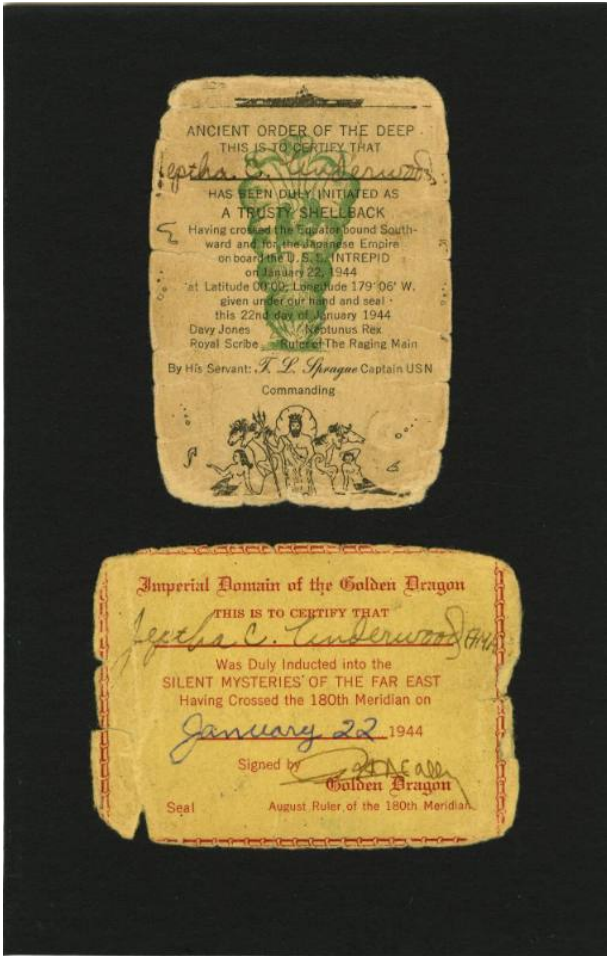 ANCIENT ORDER OF THE DEEP
THIS IS TO CERTIFY THAT
Jeptha C. Underwood
HAS BEEN DULY INITIATED AS
A TRUSTY SHELLBACK
Having crossed the Equator bound South-
ward and for the Japanese Empire
on board the U. S. S. INTREPID
on January 22, 1944
at Latitude 00'00, Longitude 179° 06' W.
given under our hand and seal
this 22nd day of January 1944
Davy Jones Neptunus Rex
Royal Scribe Ruler of The Raging Main
By His Servant: T. L. Sprague Captain USN
Commanding
Imperial Domain of the Golden Dragon
THIS IS TO CERTIFY THAT
Jeptha C. Underwood
Was Duly Inducted into the
SILENT MYSTERIES OF THE FAR EAST
Having Crossed the 180th Meridian on
January 22 1944
Signed by
Golden Dragon
Seal August Ruler of the 180th Meridian